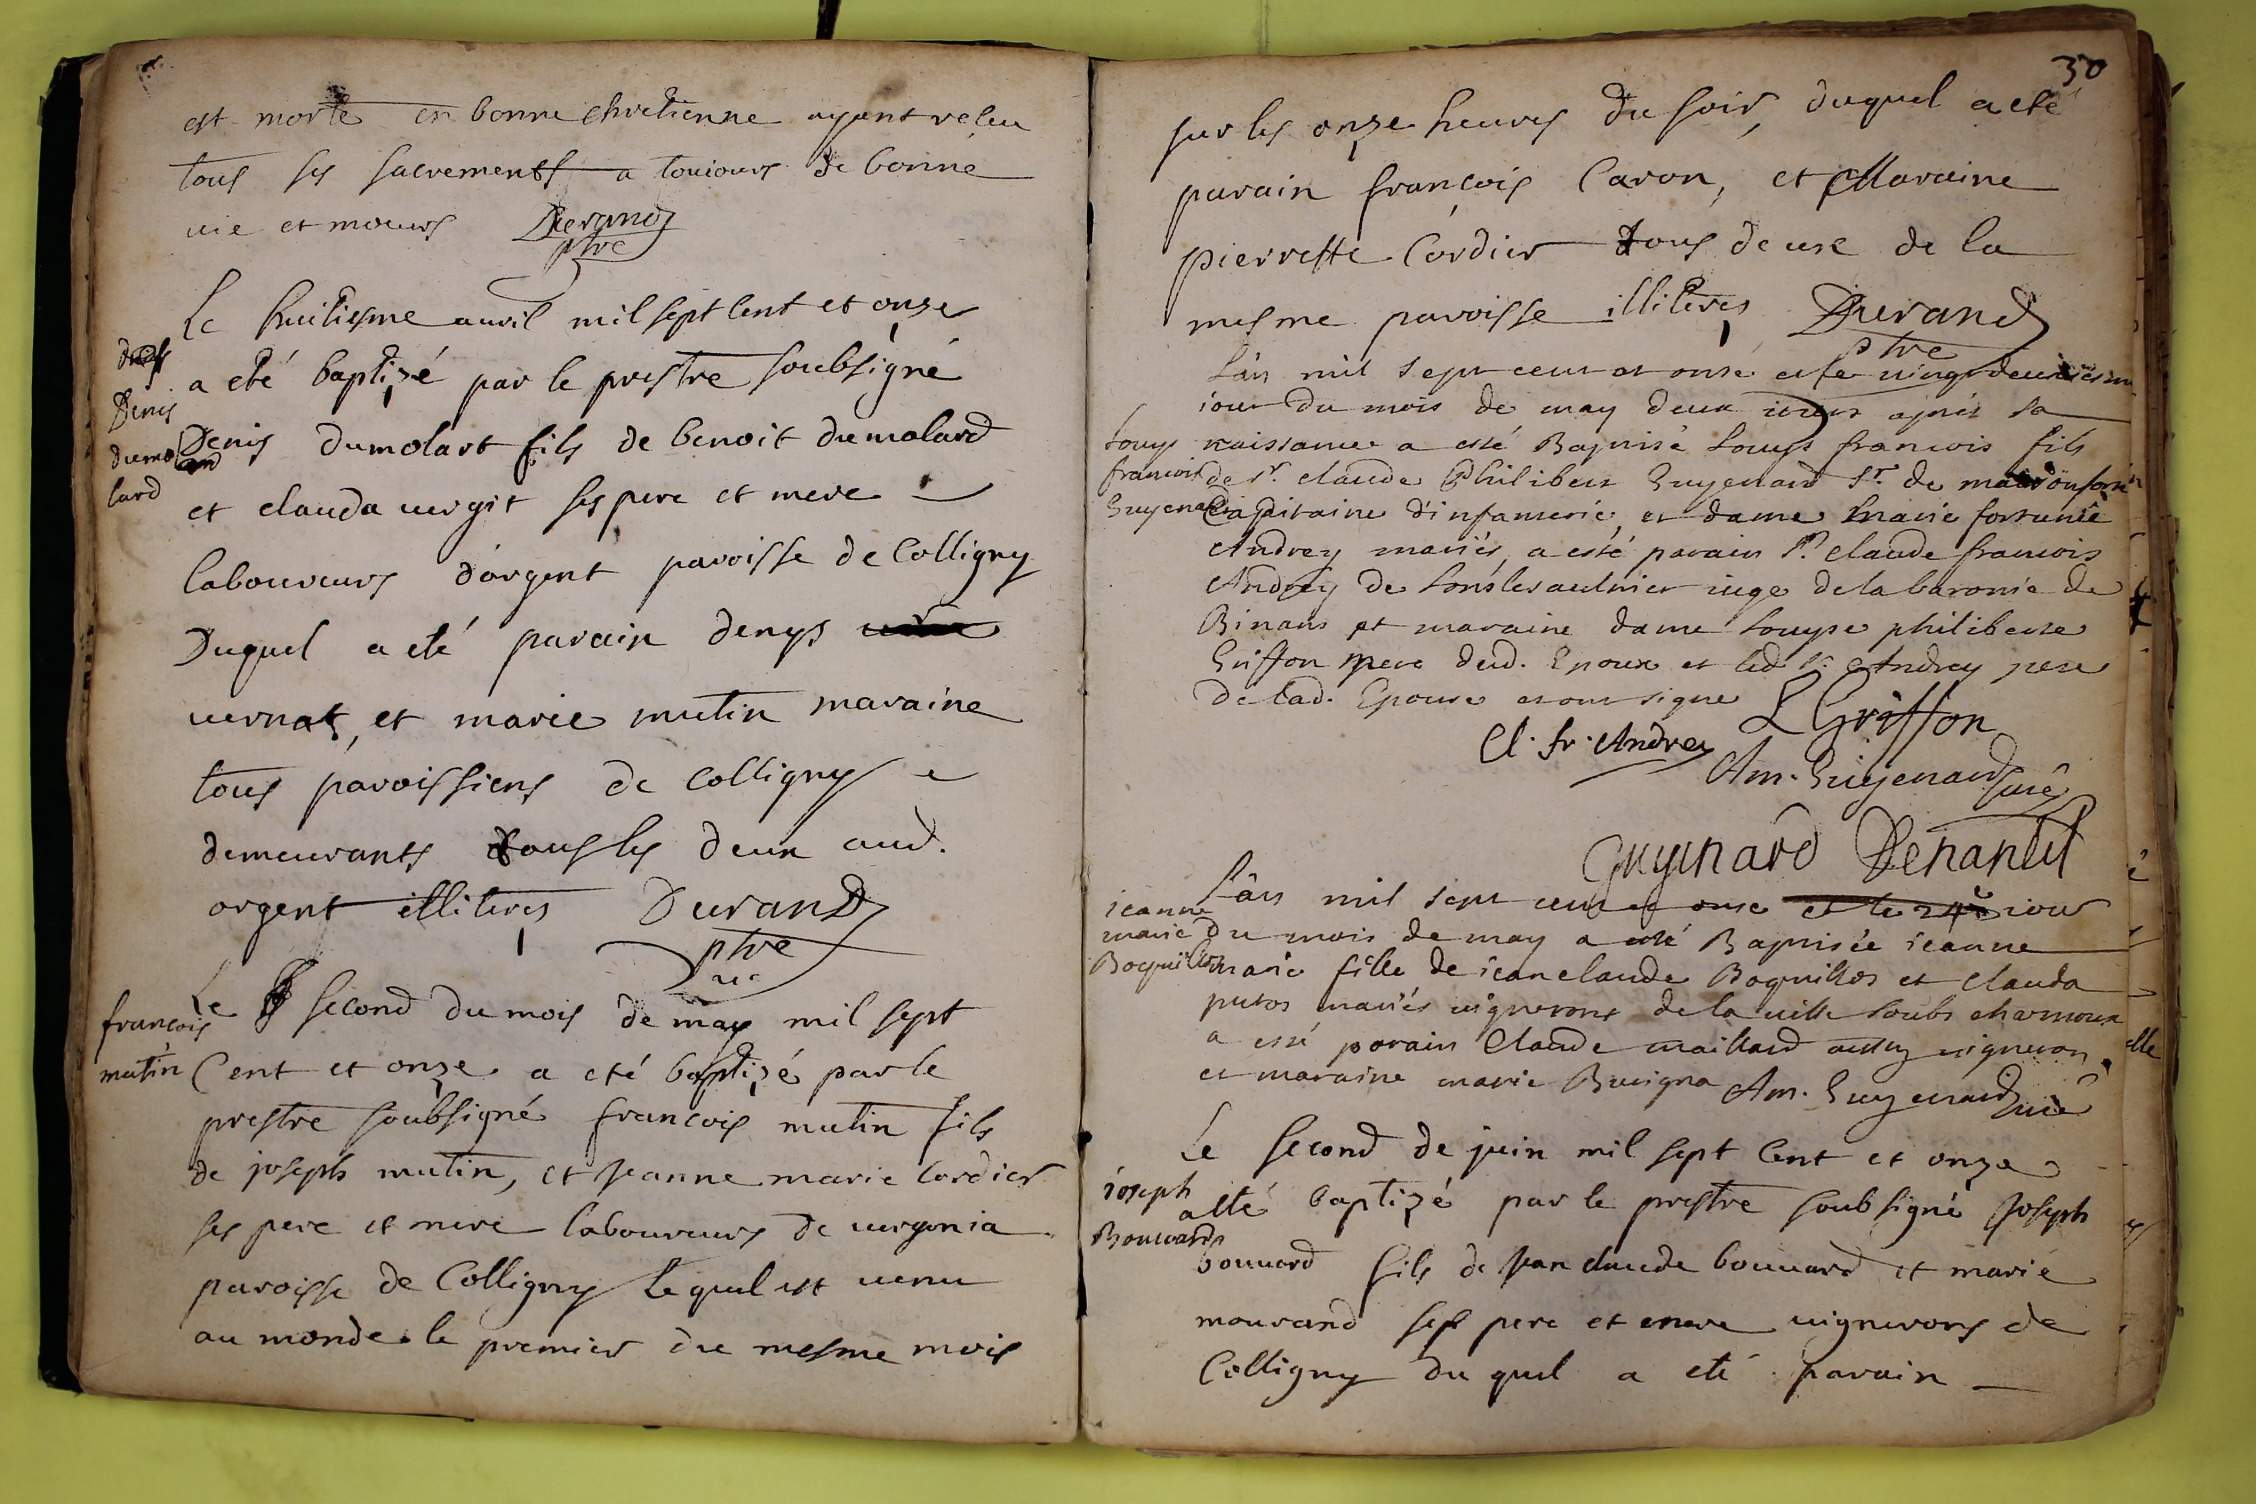 est morte en bonne chretienne ayant reçeu
tous ses sacrements a toujours de bonne
vie et mœurs Durand
ptre
Le huitiesme auvil mil sept cent et onze
a eté baptizé par le prestre soubsigné
Denys
dumo
lard
Denis dumolart fils de benoit dumolard
et clauda vergit ses pere et mere
laboureurs d'orgent paroisse de Colligny
Duquel a eté parain denys
uernat, et marie mutin maraine
tous paroissiens de colligny
demeurants tous les deux aud.
orgent illiteres Durand
ptre
vic
françois
mutin
Le second du mois de may mil sept
Cent et onze a eté baptizé par le
prestre soubsigné françois mutin fils
de joseph mutin, et jeanne marie cordier
ses pere et mere laboureurs de uergonia
paroisse de Colligny Lequel est uenu
au monde le premier du mesme mois
30
sur les onze heures du soir, duquel a eté
parain françois Caron, et Maraine
pierrette Cordier tous deux de la
mesme paroisse illiteres Durand
ptre
L'an mil sept cent et onse et le uingt deuxiesme
jour du mois de may deux iours apres sa
Louys
francois
Guyenard
naissance a esté Baptisé Louys francois fils
de Sr. claude Philibert Guyenard Sr. de
Capitaine d'infanterie, et dame Marie fortunée
Andrey mariés, a esté parain Sr. claude francois
Andrey de Lonslesaulnier iuge de la baronie de
Binans et maraine dame Louyse philiberte
Griffon mere dud. Epoux et led Sr. Andrey pere
de lad. Epouse et ont signe L Griffon
Cl. fr. Andrey
Am. Guyenard curé
Guyenard Denanut
L'an mil sept cent et onse et le 24e iour
ieanne
marie
Boquillos
du mois de may a esté Baptisée ieanne
marie fille de iean claude Boquillos et clauda
putos mariés uignerons de la uille soubs charmoux
a esté parain Claude maillard aussy uigneron
et maraine marie Burigna Am. Guyenard curé
Le second de juin mil sept Cent et onze
ioseph
Bouuard
a eté baptizé par le prestre soubsigné Joseph
bouuard fils de Jean claude bouuard et marie
mourand ses pere et mere uignerons de
Colligny du quel a eté parain